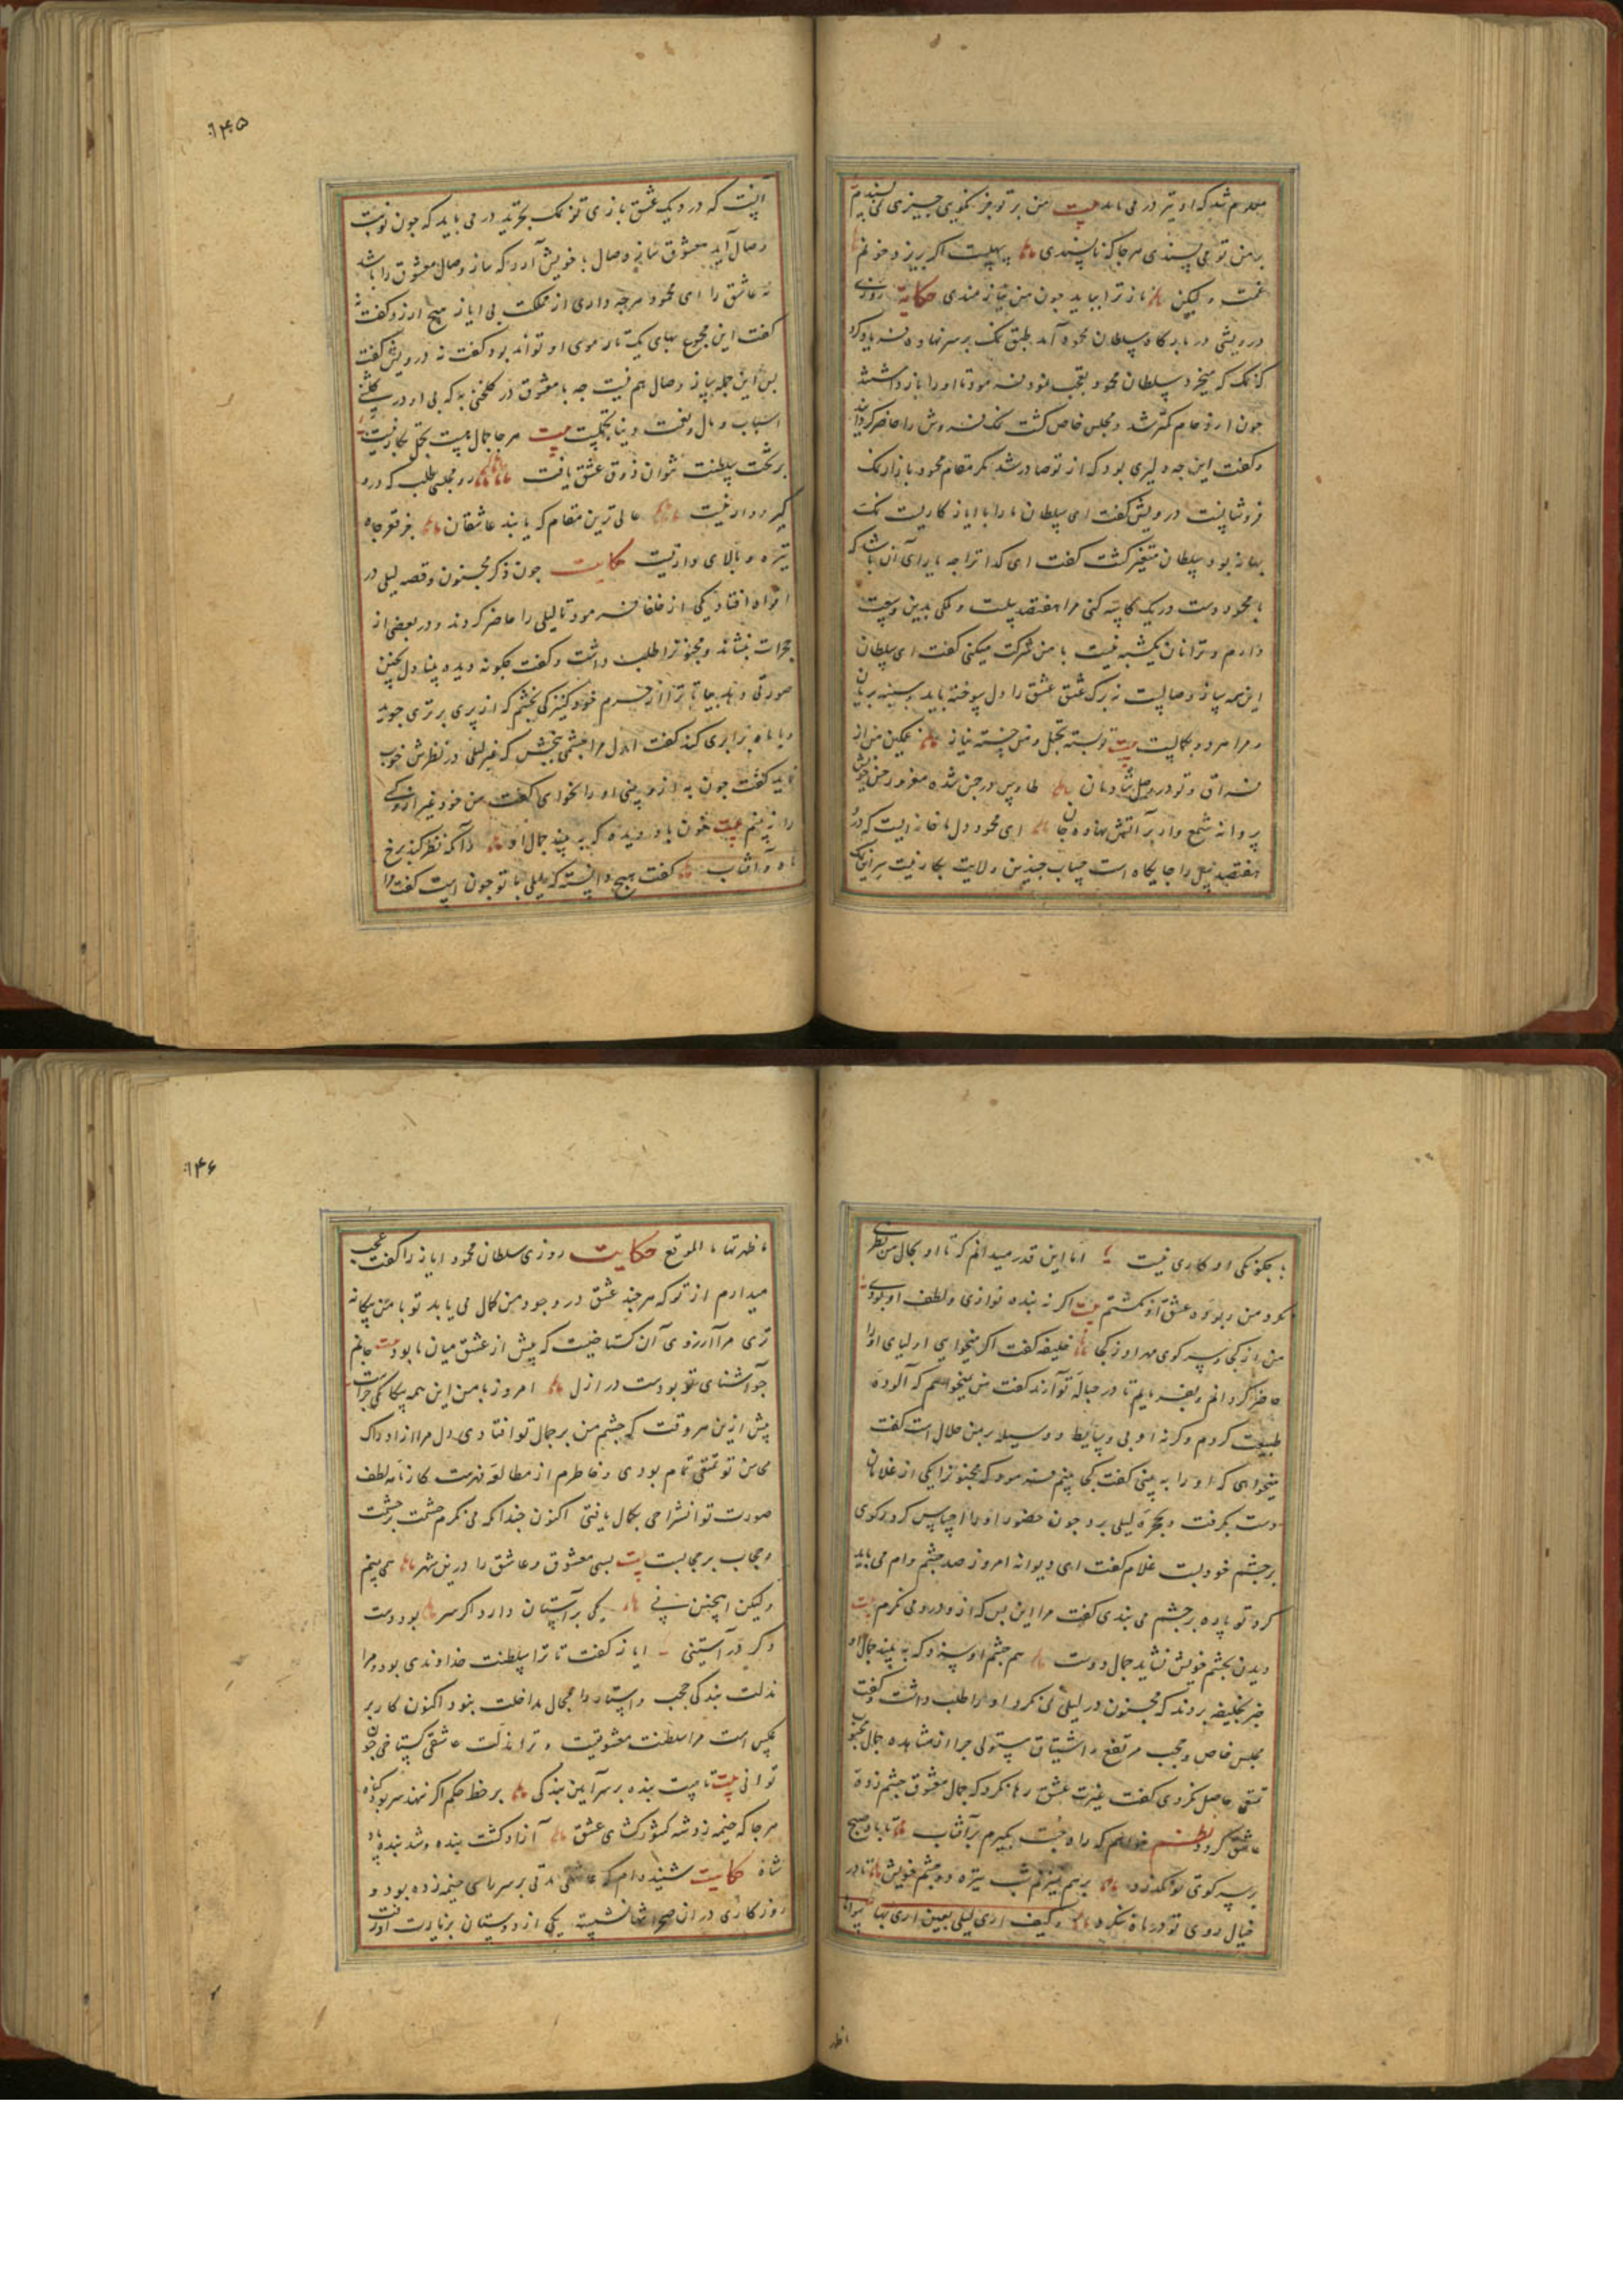 معلوم شد که او نیز در می یابد بیت من بر تو بجز نکویی چیزی نپسندم
بر من تو می پسندی هرجا که ناپسندی سهلست اگر بریزد خونم
غمت ولیکن ناز ترا بباید چون من نیازمندی حکایت روزی
درویشی در بارگاه سلطان محمود آمد طبق نمک بر سر نهاده فریاد کرد
که نمک که میخرد سلطان محمود تعجب نمود فرمود تا او را بازداشتند
چون ازدحام کمتر شد و مجلس خاص گشت نمک فروش را حاضر گردانید
و گفت این چه دلیری بود که از تو صادر شد مگر مقام محمود بازار نمک
فروشانست درویش گفت ای سلطان ما را با ایاز کاریست نمک
بهانه بود سلطان متغیر گشت گفت ای گدا ترا چه یارای آن باشد که
با محمود دست در یک کاسه کنی مرا هفتصد پیلست و ملکی بدین وسعت
دارم و ترا نان یکشبه نیست با من شرکت میکنی گفت ای سلطان
این همه ساز وصالست نه برک عشق عشق را دل سوخته باید و سینه بریان
و مرا هر دو بکمالست بیت تو بسته تجمل و من خسته نیاز غمگین من از
فراق و تو در وصل شادمان طاوس در چمن شده مغرور حسن خویش
پروانه شمع وار بر آتش نهاده جان ای محمود دل ما خانه ایست که در
هفتصد پیل را جایگاه است حساب چندین ولایت بکار نیست سر انجامک
۱۴۵
آنست که در دیک عشق بازی قدر نمک بخرند در می باید که چون نوبت
وصال آید معشوق ساز وصال با خویش آرد که ساز وصال معشوق را باشد
نه عاشق را ای محمود هرچه داری از مملکت بی ایاز هیچ ارزد گفت نه
گفت این مجموع بهای یک تاره موی او تواند بود گفت نه درویش گفت
پس این جمله ساز وصال هم نیست چه با معشوق در گلخنی به که بی او در گلشنی
اسباب و مال و نعمت دنیا تجملست بیت هرجا جمال هست تجمل بکار نیست
بر تخت سلطنت نتوان ذوق عشق یافت رو مجلسی طلب که درو
گیر و دار نیست عالی ترین مقام که یابند عاشقان جز قعر چاه
تیره و بالای دار نیست حکایت چون ذکر مجنون و قصه لیلی در
افواه افتاد یکی از خلفا فرمود تا لیلی را حاضر کردند و در بعضی از
حجرات بنشاند و مجنونرا طلب داشت و گفت چگونه دیده بینا دل بچنین
صورتی دهد بیا تا ترا از حرم خود کنیزکی بخشم که از پری برتری جوید
و با ماه برابری کند گفت اول مرا چشمی ببخش که غیر لیلی در نظرش خوب
نماید گفت چون به ازو بینی او را نخواهی گفت من خود غیر ازو کسی
را نه بینم بیت خون باد دیده که به بیند جمال او آنگه نظر کند برخ
ماه و آفتاب گفت هیچ دانسته که لیلی با تو چون است گفت مرا
با چگونگی او کاری نیست اما این قدر میدانم که تا او بحال من نظری
نکرد من ربوده عشق او نگشتم بیت اگر نه بنده نوازی و لطف او بودی
من از کجا و سر کوی مهر او ز کجا خلیفه گفت اگر میخواهی اولیای او را
حاضر گردانم و بفرمایم تا در حباله تو آرند گفت من نمیخواهم که آلوده
طبیعت گردم و گر نه او بی وسایط و وسیله بر من حلال است گفت
میخواهی که او را به بینی گفت کجا بینم فرمود که مجنونرا یکی از غلامان
دست بگرفت و بحجره لیلی برد چون حضور او را احساس کرد رکوی
بر چشم خود بست غلام گفت ای دیوانه امروز صد چشم وام می باید
کرد تو پاره بر چشم می بندی گفت مرا این بس که از دور درو می نگرم بیت
دیدن بچشم خویش نشاید جمال دوست هم چشم او سزد که به بیند جمال او
خبر بخلیفه بردند که مجنون در لیلی نمی نگرد او را طلب داشت و گفت
مجلس خاص و حجب مرتفع و اشتیاق مستولی چرا از مشاهده جمال محبوب
تمتعی حاصل نکردی گفت غیرت عشق رها نکرد که جمال معشوق چشم زده
عاشق گردد نظم خواهم که راه جست بگیرم بر آفتاب تا باد صبح
بر سر کوی تو نگذرد بر هم نمیزنم شب تیره دو چشم خویش تا در
خیال روی تو در ماه ننگرد و کیف اری لیلی بعین اری بها سواها
اطهر
۱۴۶
ما طهرتها بالمدامع حکایت روزی سلطان محمود ایاز را گفت عجب
میدارم از تو که هرچند عشق در وجود من کمال می یابد تو با من بیگانه
تری مرا آرزوی آن گستاخیست که پیش از عشق میان ما بود بیت جانم
چو آشنای تو بودست در ازل امروز با من این همه بیگانگی چراست
پیش ازین هر وقت که چشم من بر جمال تو افتادی دل مرا از ادراک
محاسن تو تمتعی تمام بودی و خاطرم از مطالعه فهرست کارنامه لطف
صورت تو انشراحی بکمال یافتی اکنون چندانکه می نگرم حشمت بر حشمت
و حجاب بر حجابست بیت بسی معشوق و عاشق را درین شهر همی بینم
ولیکن اینچنین نی یکی بر آستان دارد اگر سر بود دست
دگر در آستینی ایاز گفت تا ترا سلطنت خداوندی بود و مرا
مذلت بندگی حجب و استار را مجال مداخلت بنود اکنون کار بر
عکس است مرا سلطنت معشوقیست و ترا مذلت عاشقی گستاخی چون
توانی بیت تا هست بنده بر سر آیین بندگی بر خط حکم اگر ننهد سر بود گناه
هرجا که خیمه زد شه کشورگشای عشق آزاد گشت بنده و شد بنده پادشاه
حکایت شنیده ام که عاشقی مدتی بر سر راهی خیمه زده بود و
روزگاری در ان صحرا نشسته یکی از دوستان بزیارت او رفت